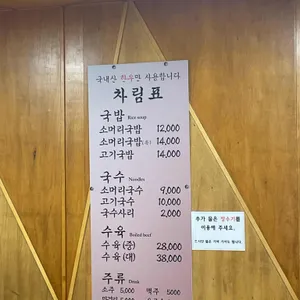 국내산 한우만 사용합니다
차림표
국밥 Rice soup
소머리국밥 12,000
소머리국밥(특) 14,000
고기국밥 14,000
국수 Noodles
소머리국수 9,000
고기국수 10,000
국수사리 2,000
수육 Boiled beef
수육(중) 28,000
수육(대) 38,000
주류 Drink
소주 5,000 맥주 5000
추가 물은 정수기를
이용해 주세요.